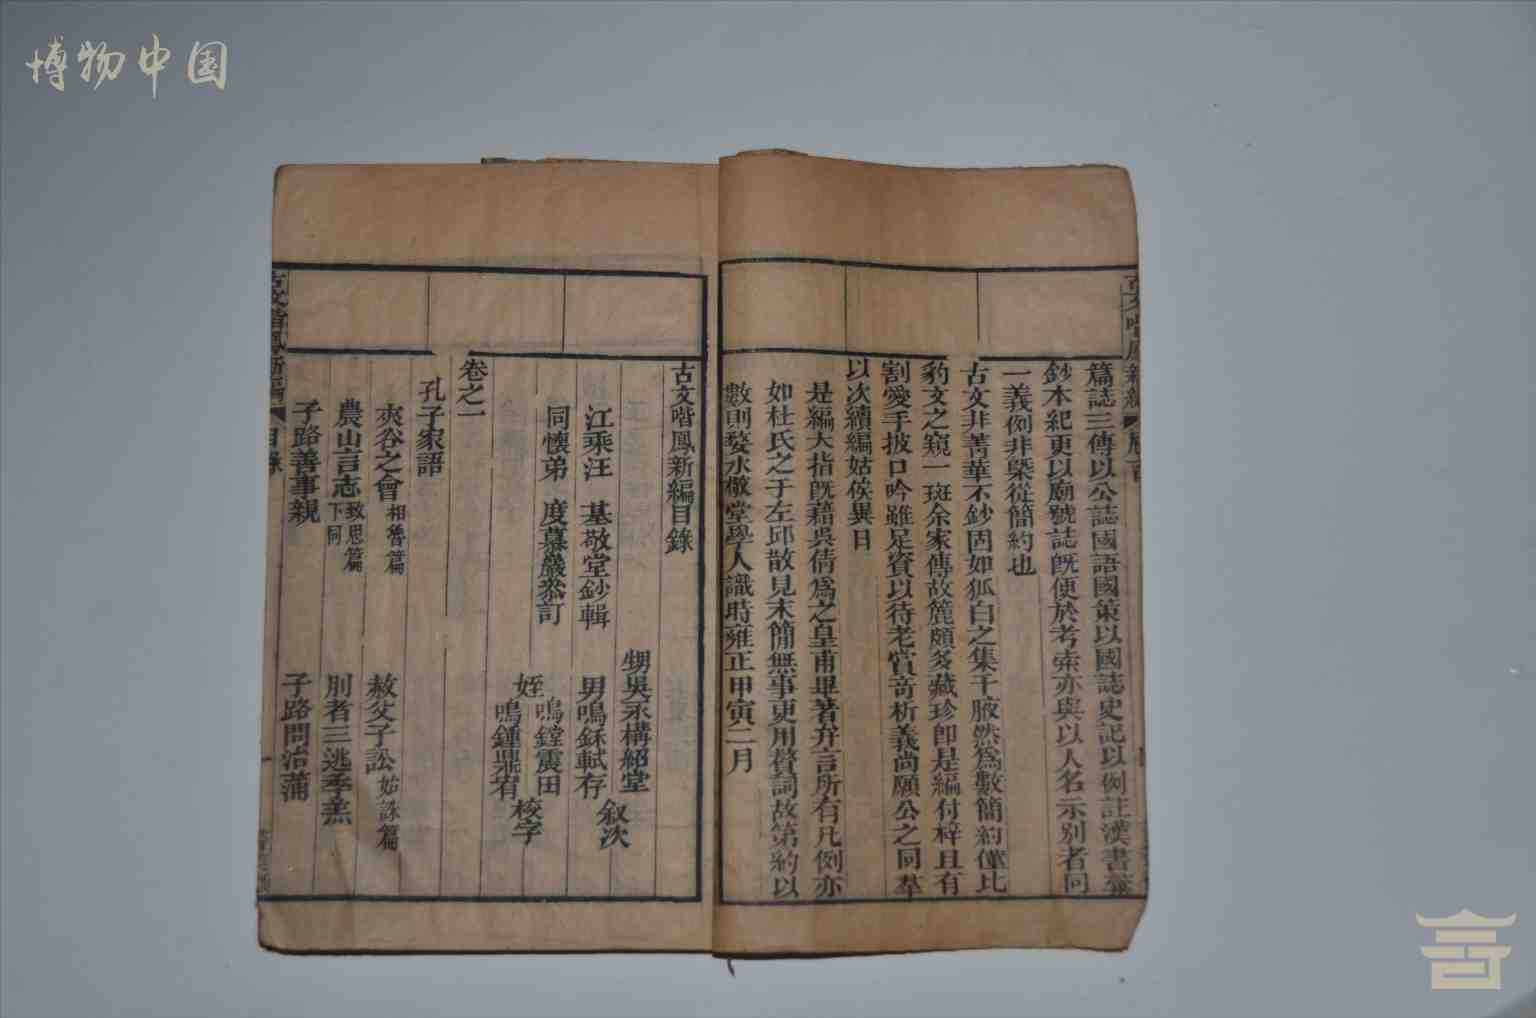 博物中国
篇誌三傳以公誌國語國策以國誌史記以例註漢書
鈔本紀更以廟號誌既便於考索亦與以人名示別者同
一義例非槩從簡約也
古文非菁華不鈔固如狐白之集千腋然為數簡約僅比
豹文之窺一斑余家傳故簏頗多藏珍即是編付梓且有
割愛手披口吟雖足資以待老賞奇析義尚願公之同羣
以次續編姑俟異日
是編大指既藉吳倩為之皇甫畢著弁言所有凡例亦
如杜氏之于左邱散見末簡無事更用贅詞故第約以
數則婺水儆堂學人識時雍正甲寅二月
古文喈鳳新編目錄
甥吳永構紹堂
江乘汪 基敬堂鈔輯 男鳴銾軾存 叙次
同懷弟 度慕巖叅訂 姪鳴鏜震田
鳴鍾鼎宥 校字
卷之一
孔子家語
夾谷之會相魯篇 赦父子訟始誅篇
農山言志致思篇下同 刖者三逃季羔
子路善事親 子路問治蒲
古文喈鳳新編 目錄 一